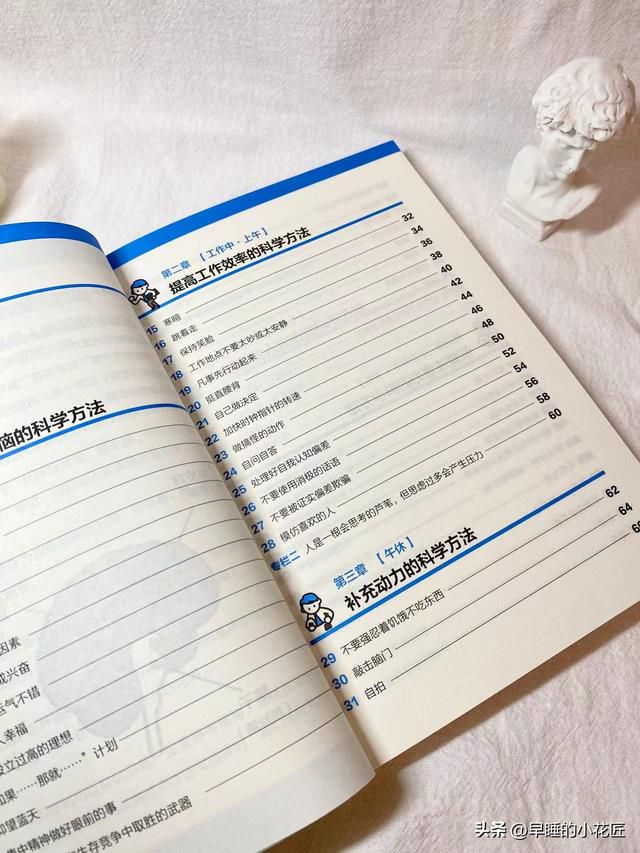 脑的科学方法
因素
成兴奋
运气不错
人幸福
设立过高的理想
如果……那就……”计划
仰望蓝天
集中精神做好眼前的事
生存竞争中取胜的武器
第二章 【工作中·上午】
提高工作效率的科学方法
15 寒暄 32
16 跳着走 34
17 保持笑脸 36
18 工作地点不要太吵或太安静 38
19 凡事先行动起来 40
20 挺直腰背 42
21 自己做决定 44
22 加快时钟指针的转速 46
23 做搞怪的动作 48
24 自问自答 50
25 处理好自我认知偏差 52
26 不要使用消极的话语 54
27 不要被证实偏差欺骗 56
28 模仿喜欢的人 58
专栏二 人是一根会思考的芦苇，但思虑过多会产生压力 60
第三章 【午休】
补充动力的科学方法
29 不要强忍着饥饿不吃东西 62
30 敲击脑门 64
31 自拍
头条 @早睡的小花匠